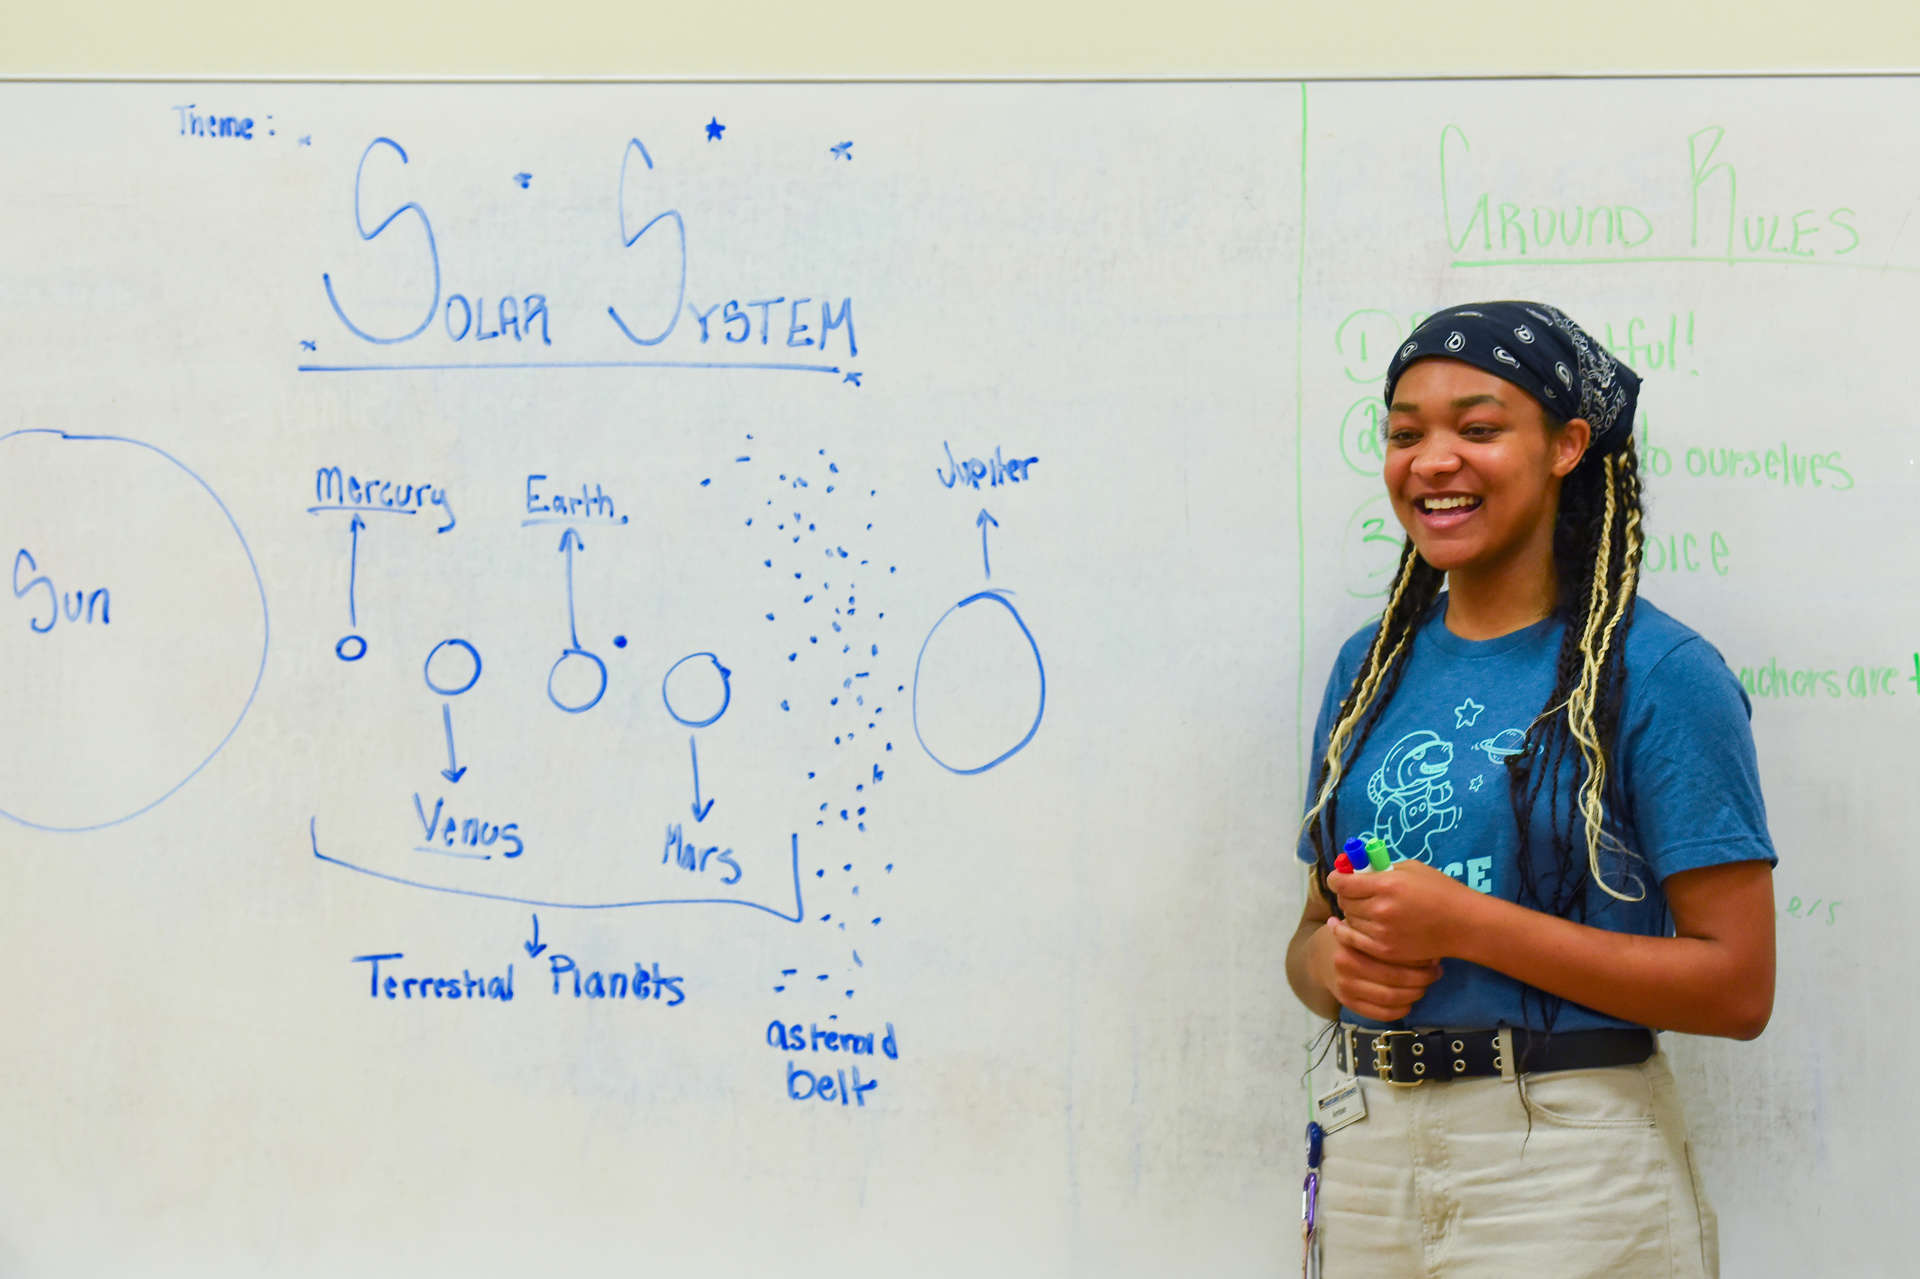 Theme:
SOLAR SYSTEM
Sun
Mercury
Earth
Jupiter
Venus
Mars
Terrestrial Planets
asteroid
belt
GROUND RULES
1
tful!
2
to ourselves
3
oice
achers are t
ers
CE